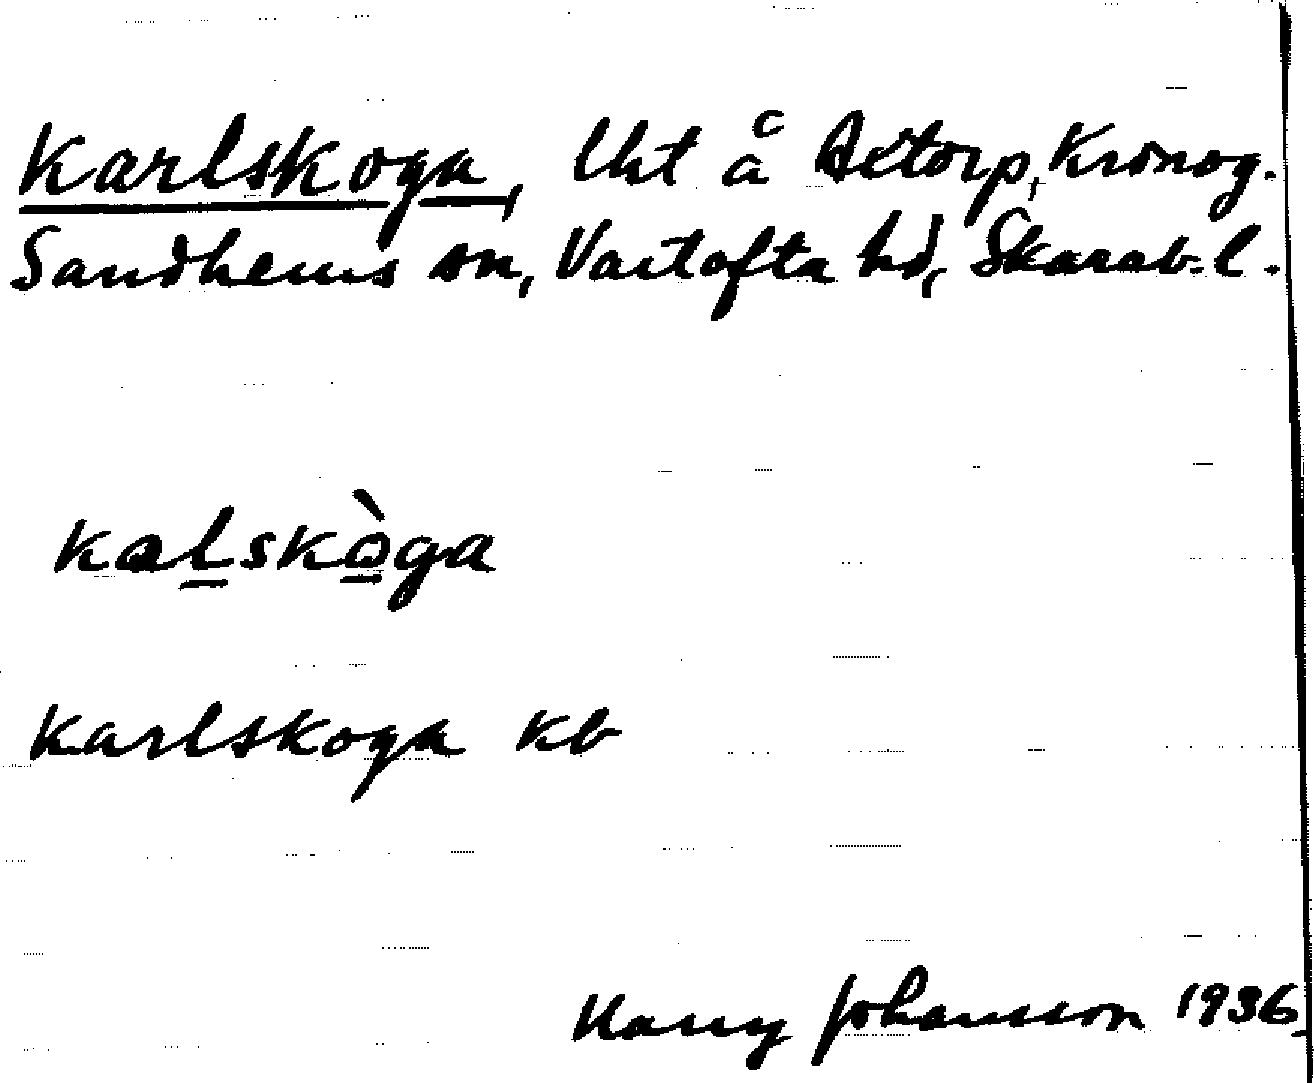 Karlskoga, lht å Aetorp, Kronog.
Sandhems sn, Vartofta hd, Skarab. l.
kalskòga
Karlskoga kb
Harry Johansson 1936